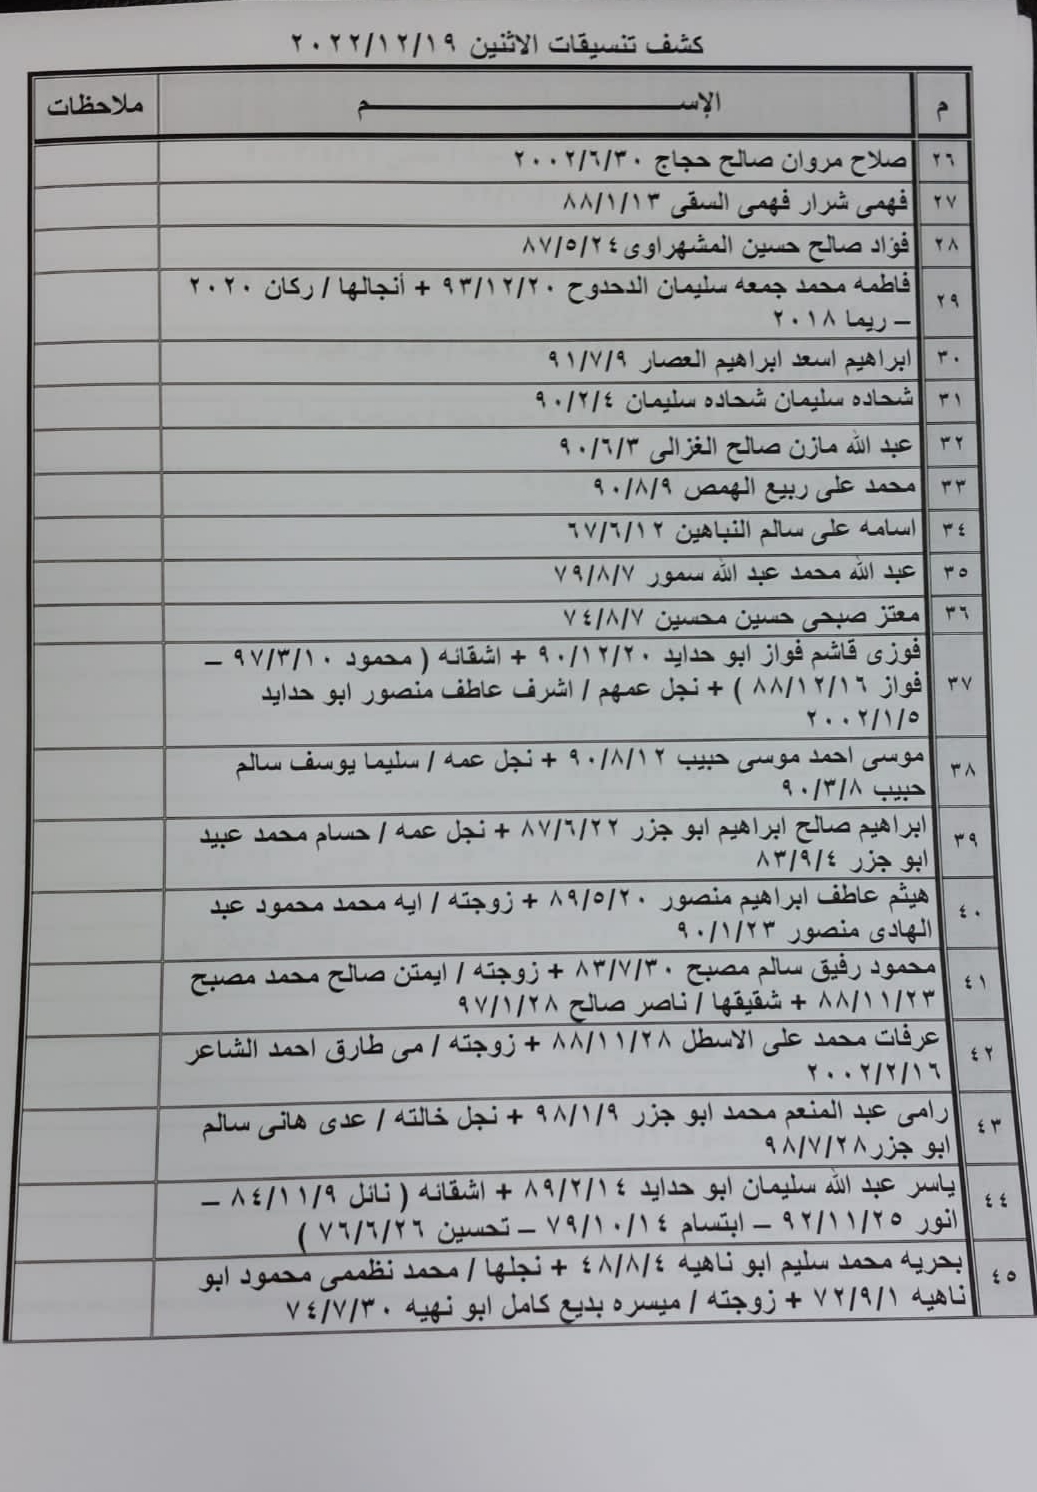 كشف تنسيقات الاثنين ٢٠٢٢/١٢/١٩
م الإســـــــــم ملاحظات
٢٦ صلاح مروان صالح حجاج ٢٠٠٢/٦/٣٠
٢٧ فهمى شرار فهمى السقى ٨٨/١/١٣
٢٨ فؤاد صالح حسين المشهراوى ٨٧/٥/٢٤
٢٩ فاطمه محمد جمعه سليمان الدحدوح ٩٣/١٢/٢٠ + أنجالها / ركان ٢٠٢٠
– ريما ٢٠١٨
٣٠ ابراهيم اسعد ابراهيم العصار ٩١/٧/٩
٣١ شحاده سليمان شحاده سليمان ٩٠/٢/٤
٣٢ عبد الله مازن صالح الغزالى ٩٠/٦/٣
٣٣ محمد على ربيع الهمص ٩٠/٨/٩
٣٤ اسامه على سالم النباهين ٦٧/٦/١٢
٣٥ عبد الله محمد عبد الله سمور ٧٩/٨/٧
٣٦ معتز صبحى حسين محسين ٧٤/٨/٧
٣٧ فوزى قاشم فواز ابو حدايد ٩٠/١٢/٢٠ + اشقائه ( محمود ٩٧/٣/١٠ –
فواز ٨٨/١٢/١٦ ) + نجل عمهم / اشرف عاطف منصور ابو حدايد
٢٠٠٢/١/٥
٣٨ موسى احمد موسى حبيب ٩٠/٨/١٢ + نجل عمه / سليما يوسف سالم
حبيب ٩٠/٣/٨
٣٩ ابراهيم صالح ابراهيم ابو جزر ٨٧/٦/٢٢ + نجل عمه / حسام محمد عبيد
ابو جزر ٨٣/٩/٤
٤٠ هيثم عاطف ابراهيم منصور ٨٩/٥/٢٠ + زوجته / ايه محمد محمود عبد
الهادى منصور ٩٠/١/٢٣
٤١ محمود رفيق سالم مصبح ٨٣/٧/٣٠ + زوجته / ايمتن صالح محمد مصبح
٨٨/١١/٢٣ + شقيقها / ناصر صالح ٩٧/١/٢٨
٤٢ عرفات محمد على الاسطل ٨٨/١١/٢٨ + زوجته / مى طارق احمد الشاعر
٢٠٠٢/٢/١٦
٤٣ رامى عبد المنعم محمد ابو جزر ٩٨/١/٩ + نجل خالته / عدى هانى سالم
ابو جزر٩٨/٧/٢٨
٤٤ ياسر عبد الله سليمان ابو حدايد ٨٩/٢/١٤ + اشقائه ( نائل ٨٤/١١/٩ –
انور ٩٢/١١/٢٥ – ابتسام ٧٩/١٠/١٤ – تحسين ٧٦/٦/٢٦ )
٤٥ بحريه محمد سليم ابو ناهيه ٤٨/٨/٤ + نجلها / محمد نظممى محمود ابو
ناهيه ٧٢/٩/١ + زوجته / ميسره بديع كامل ابو نهيه ٧٤/٧/٣٠